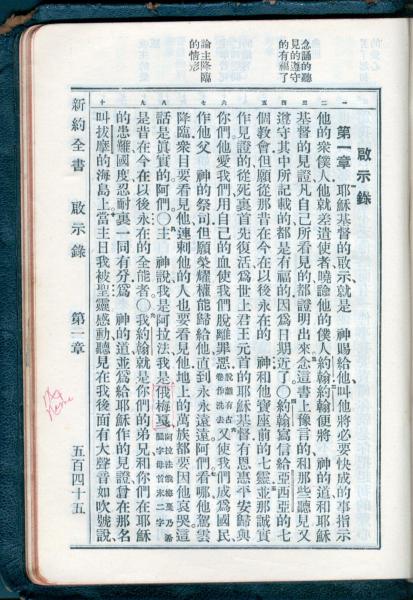 念誦的聽
見的遵守
的有福了
論主降臨
的情形
啟示錄
一 二 三 四 五 六 七 八 九 十
第一章 耶穌基督的啟示就是 神賜給他叫他將必要快成的事指示
他的衆僕人他就差遣使者曉諭他的僕人約翰約翰便將 神的道和耶穌
基督的見證凡自己所看見的都證明出來念這書上豫言的和那些聽見又
遵守其中所記載的都是有福的因爲日期近了○約翰寫信給亞西亞的七
個教會但願從那昔在今在以後永在的 神和他寶座前的七靈並那誠實
作見證的從死裏首先復活爲世上君王元首的耶穌基督有恩惠平安歸與
你們他愛我們用自己的血使我們脫離罪惡脫離有古卷作洗去又使我們成爲國民
作他父 神的祭司但願榮耀權能歸給他直到永永遠遠阿們看哪他駕雲
降臨衆目要看見他連刺他的人也要看見他地上的萬族都要因他哀哭這
話是眞實的阿們○主 神說我是阿拉法我是俄梅戛阿拉法俄梅戛乃希臘字母首末二字
是昔在今在以後永在的全能者○我約翰就是你們的弟兄和你們在耶穌
的患難國度忍耐裏一同有分爲 神的道並爲給耶穌作的見證曾在那名
叫拔摩的海島上當主日我被聖靈感動聽見在我後面有大聲音如吹號說
新約全書 啟示錄 第一章 五百四十五